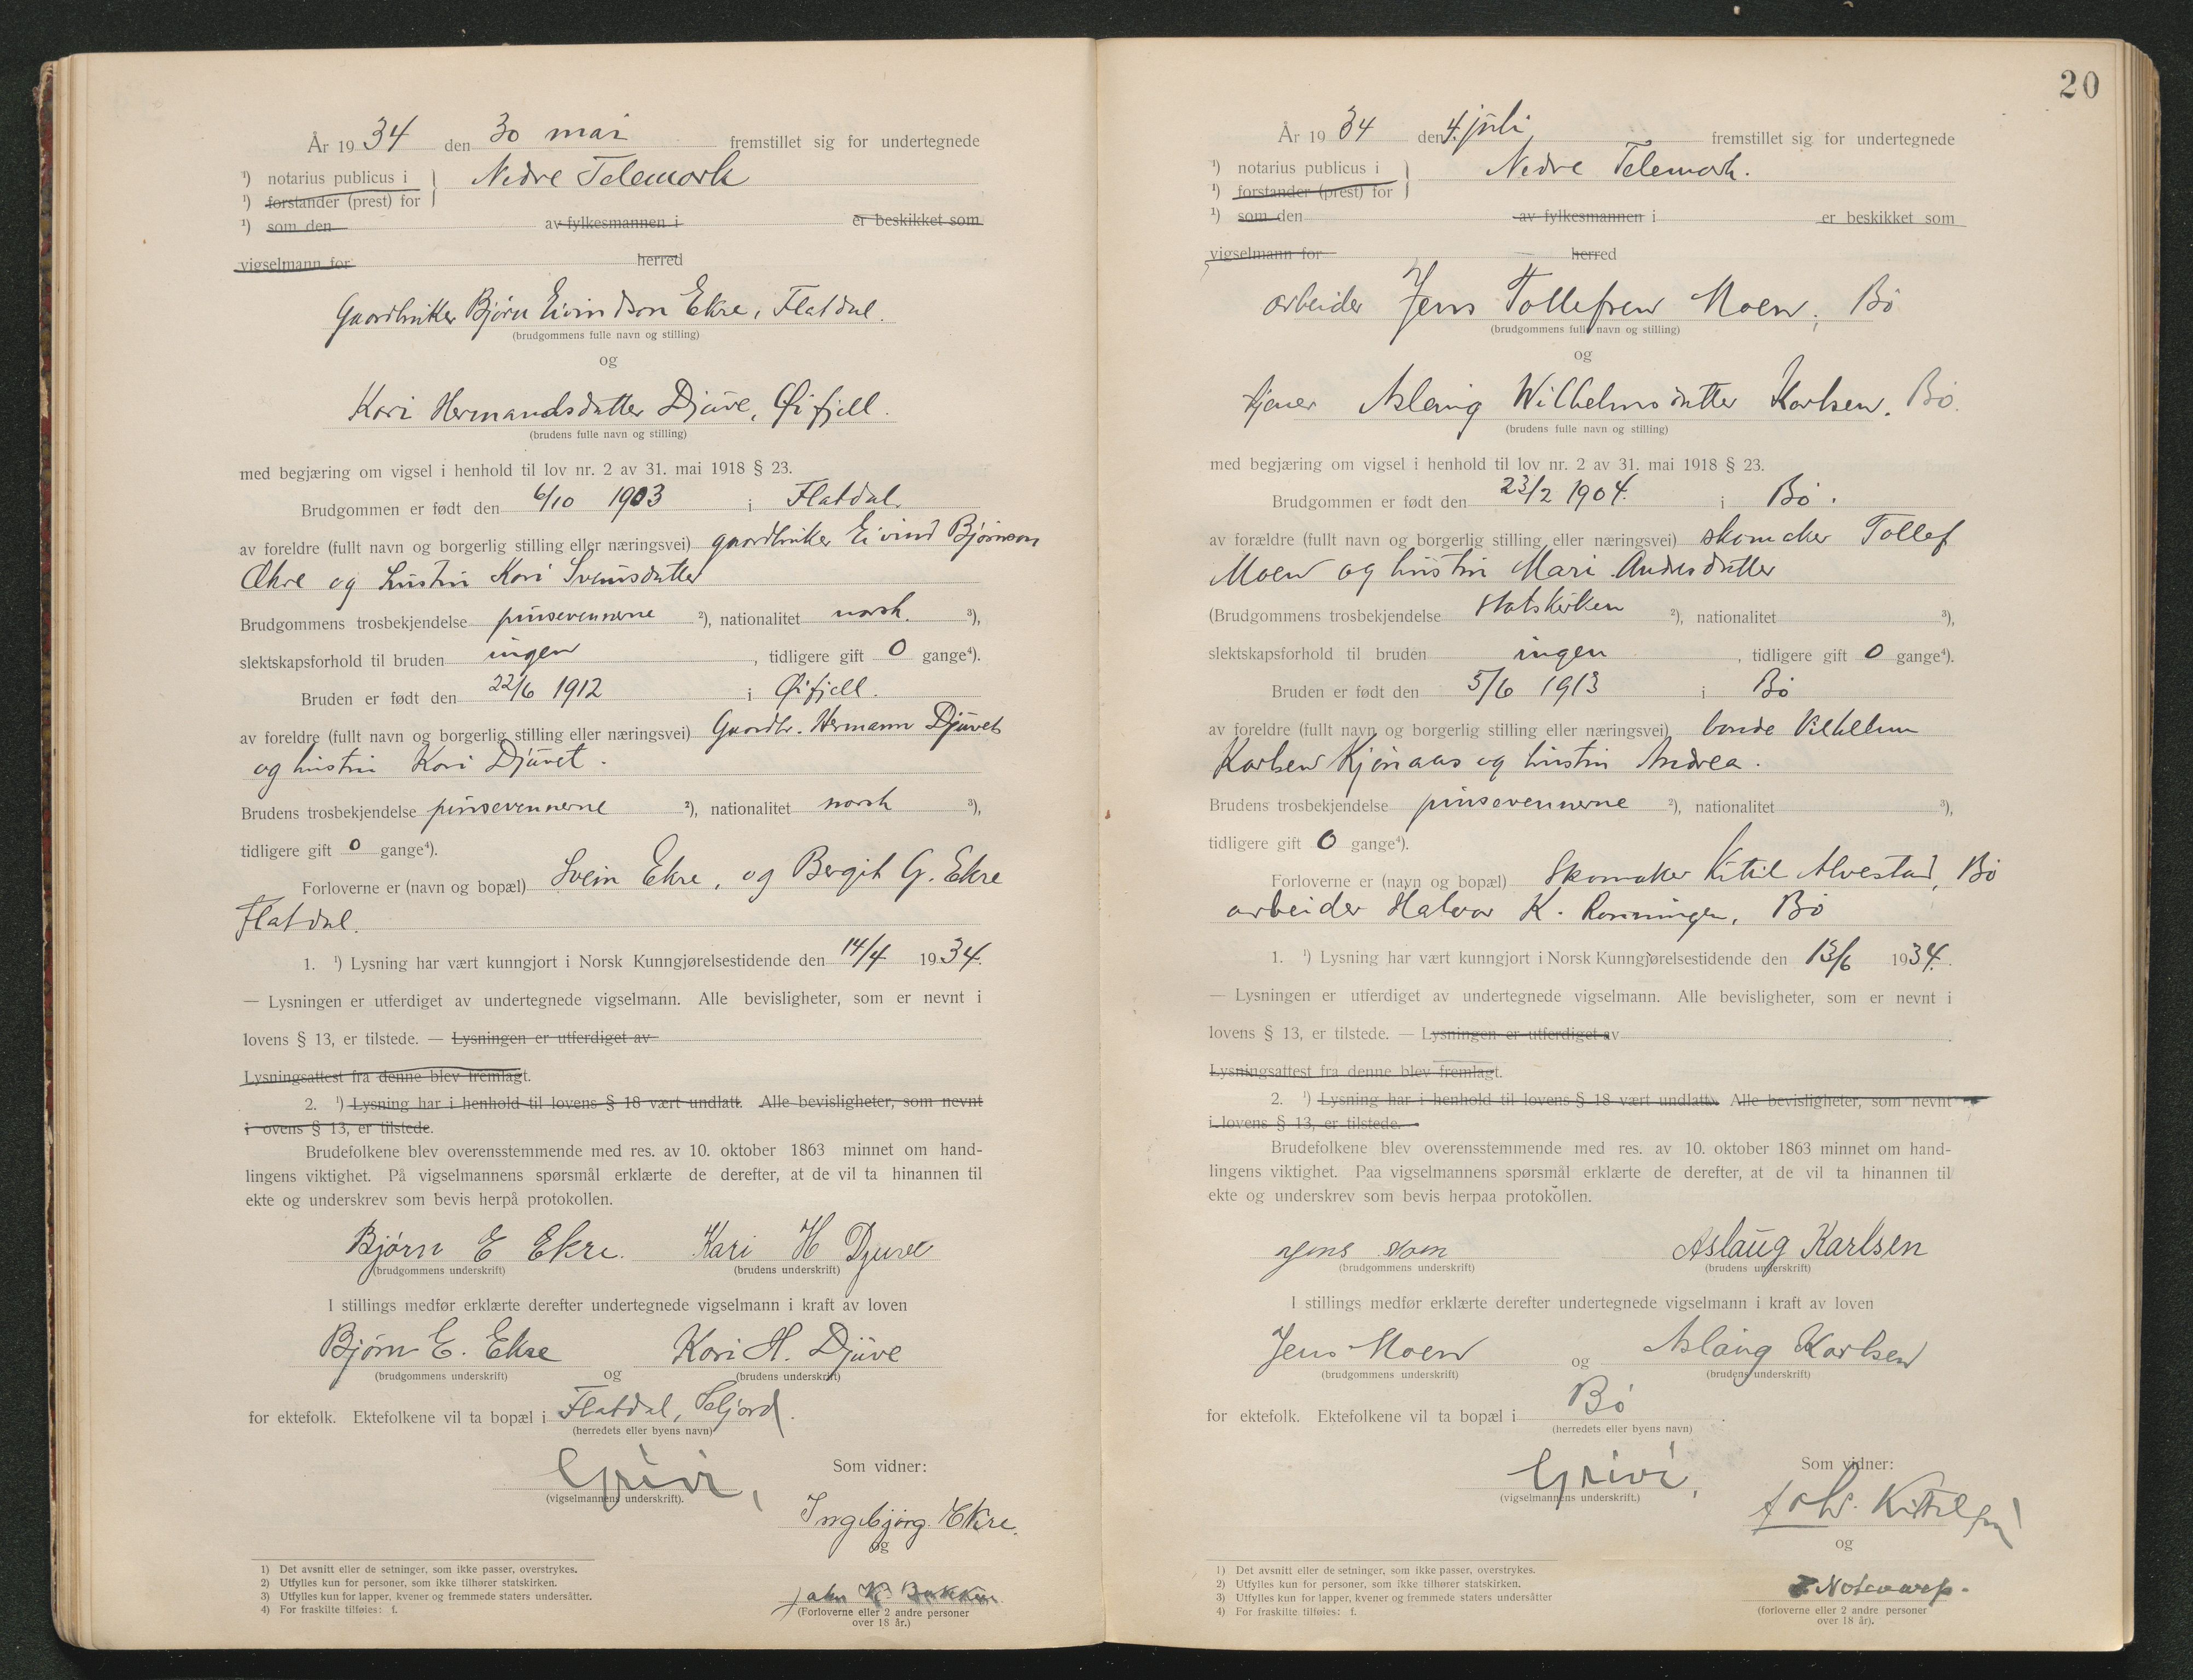 År 1934 den 30 mai fremstillet sig for undertegnede
¹) notarius publicus i } Nedre Telemark
¹) forstander (prest) for
¹) som den av fylkesmannen i er beskikket som
vigselmann for herred
Gaardbruker Bjørn Eivindson Ekre, Flatdal.
(brudgommens fulle navn og stilling)
og
Kari Hermandsdatter Djuve, Øifjell.
(brudens fulle navn og stilling)
med begjæring om vigsel i henhold til lov nr. 2 av 31. mai 1918 § 23.
Brudgommen er født den 6/10 1903 i Flatdal.
av foreldre (fullt navn og borgerlig stilling eller næringsvei) gaardbruker Eivind Bjørnson
Ekre og hustru Kari Sveinsdatter
Brudgommens trosbekjendelse pinsevennerne ²), nationalitet norsk. ³),
slektskapsforhold til bruden ingen, tidligere gift 0 gange⁴).
Bruden er født den 22/6 1912 i Øifjell.
av foreldre (fullt navn og borgerlig stilling eller næringsvei) Gaardbr. Hermann Djuvet
og hustru Kari Djuvet.
Brudens trosbekjendelse pinsevennerne ²), nationalitet norsk ³),
tidligere gift 0 gange⁴).
Forloverne er (navn og bopæl) Svein Ekre, og Bergit G. Ekre
Flatdal.
1. ¹) Lysning har vært kunngjort i Norsk Kunngjørelsestidende den 14/4 1934.
— Lysningen er utferdiget av undertegnede vigselmann. Alle bevisligheter, som er nevnt i
lovens § 13, er tilstede. — Lysningen er utferdiget av
Lysningsattest fra denne blev fremlagt.
2. ¹) Lysning har i henhold til lovens § 18 vært undlatt. Alle bevisligheter, som nevnt
i ovens § 13, er tilstede.
Brudefolkene blev overensstemmende med res. av 10. oktober 1863 minnet om hand-
lingens viktighet. På vigselmannens spørsmål erklærte de derefter, at de vil ta hinannen til
ekte og underskrev som bevis herpå protokollen.
Bjørn E Ekre. Kari H Djuve
(brudgommens underskrift) (brudens underskrift)
I stillings medfør erklærte derefter undertegnede vigselmann i kraft av loven
Bjørn E. Ekre og Kari H. Djuve
(brudgommens underskrift) (brudens underskrift)
for ektefolk. Ektefolkene vil ta bopæl i Flatdal, Seljord.
(herredets eller byens navn)
Grivi,
(vigselmannens underskrift).
Som vidner:
Ingebjørg Ekre.
og
John K. Bakken
(Forloverne eller 2 andre personer
over 18 år.)
1) Det avsnitt eller de setninger, som ikke passer, overstrykes.
2) Utfylles kun for personer, som ikke tilhører statskirken.
3) Utfylles kun for lapper, kvener og fremmede staters undersåtter.
4) For fraskilte tilføies: f.
20
År 1934 den 4. juli fremstillet sig for undertegnede
¹) notarius publicus i } Nedre Telemark.
¹) forstander (prest) for
¹) som den av fylkesmannen i er beskikket som
vigselmann for herred
arbeider Jens Tollefsen Moen, Bø
(brudgommens fulle navn og stilling)
og
tjener Aslaug Wilhelmsdatter Karlsen. Bø.
(brudens fulle navn og stilling)
med begjæring om vigsel i henhold til lov nr. 2 av 31. mai 1918 § 23.
Brudgommen er født den 23/2 1904. i Bø.
av forældre (fullt navn og borgerlig stilling eller næringsvei) skomaker Tollef
Moen og hustru Mari Andersdatter
(Brudgommens trosbekjendelse statskirken ²), nationalitet ³),
slektskapsforhold til bruden ingen, tidligere gift 0 gange⁴).
Bruden er født den 5/6 1913 i Bø
av foreldre (fullt navn og borgerlig stilling eller næringsvei) bonde Vilhelm
Karlsen Kjønaas og hustru Andrea.
Brudens trosbekjendelse pinsevennerne ²), nationalitet ³),
tidligere gift 0 gange⁴).
Forloverne er (navn og bopæl) Skomaker Kittil Alvestad, Bø
arbeider Halvor K. Rønningen, Bø
1. ¹) Lysning har vært kunngjort i Norsk Kunngjørelsestidende den 13/6 1934.
— Lysningen er utferdiget av undertegnede vigselmann. Alle bevisligheter, som er nevnt i
lovens § 13, er tilstede. — Lysningen er utferdiget av
Lysningsattest fra denne blev fremlagt.
2. ¹) Lysning har i henhold til lovens § 18 vært undlatt. Alle bevisligheter, som nevnt
i lovens § 13, er tilstede.
Brudefolkene blev overensstemmende med res. av 10. oktober 1863 minnet om hand-
lingens viktighet. Paa vigselmannens spørsmål erklærte de derefter, at de vil ta hinannen til
ekte og underskrev som bevis herpaa protokollen.
Jens Moen Aslaug Karlsen
(brudgommens underskrift) (brudens underskrift)
I stillings medfør erklærte derefter undertegnede vigselmann i kraft av loven
Jens Moen og Aslaug Karlsen
(brudgommens underskrift) (brudens underskrift)
for ektefolk. Ektefolkene vil ta bopæl i Bø.
(herredets eller byens navn)
Grivi,
(vigselmannens underskrift.)
Som vidner:
Kittilsen
og
(forloverne eller 2 andre personer
over 18 år).
1) Det avsnitt eller de setninger, som ikke passer, overstrykes.
2) Utfylles kun for personer, som ikke tilhører statskirken.
3) Utfylles kun for lapper, kvener og fremmede staters undersåtter
4) For fraskilte tilføies: f.